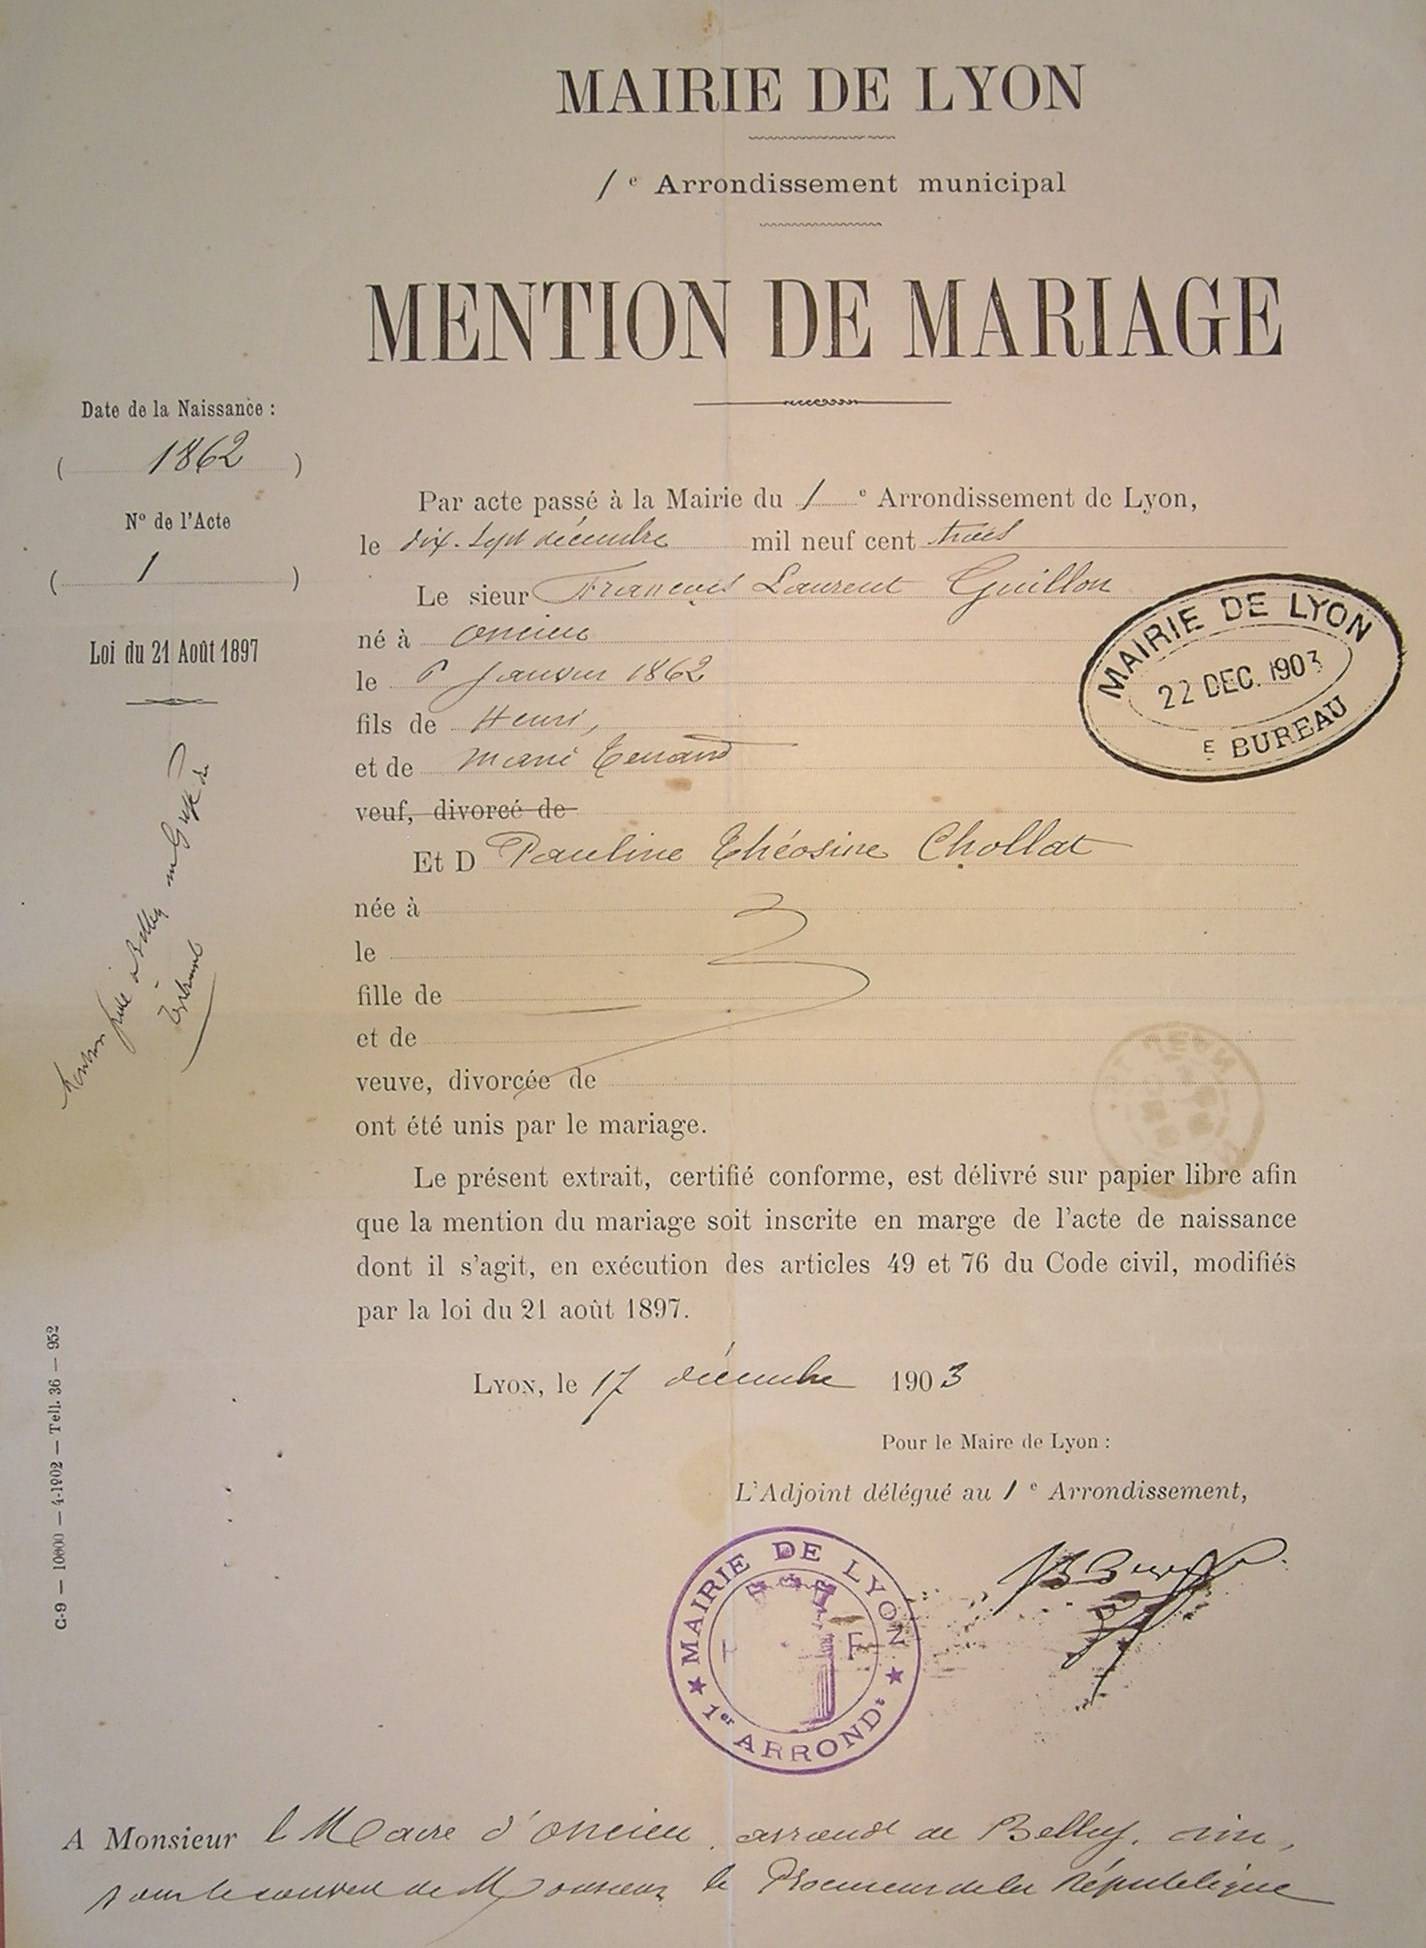 MAIRIE DE LYON
1e Arrondissement municipal
MENTION DE MARIAGE
Date de la Naissance :
( 1862 )
No de l'Acte
( 1 )
Loi du 21 Août 1897
Par acte passé à la Mairie du 1e Arrondissement de Lyon,
le dix-sept décembre mil neuf cent trois
Le sieur François Laurent Guillon
né à Oncieu
le 6 Janvier 1862
fils de Henri,
et de Marie Tenand
veuf, divorcé de
Et D Pauline Théosine Chollat
née à
le
fille de
et de
veuve, divorcée de
ont été unis par le mariage.
Le présent extrait, certifié conforme, est délivré sur papier libre afin
que la mention du mariage soit inscrite en marge de l'acte de naissance
dont il s'agit, en exécution des articles 49 et 76 du Code civil, modifiés
par la loi du 21 août 1897.
Lyon, le 17 décembre 1903
Pour le Maire de Lyon :
L'Adjoint délégué au 1e Arrondissement,
MAIRIE DE LYON
22 DEC. 1903
E BUREAU
Mention faite à Belley au Greffe du
Tribunal
C-9 — 10800 — 4-1902 — Tell. 36 — 952
MAIRIE DE LYON
F
1er ARRONDt
A Monsieur le Maire d'Oncieu, arrond de Belley, Ain,
sous le couvert de Monsieur le Procureur de la République